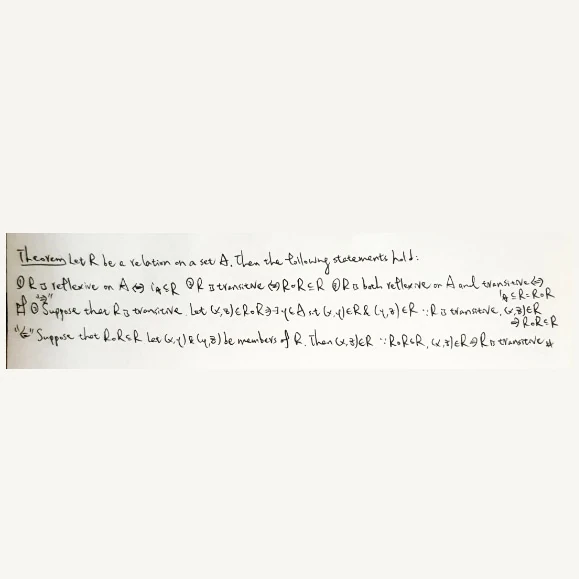 Theorem Let R be a relation on a set A. Then the following statements hold:
① R is reflexive on A ⇔ i_A ⊆ R ② R is transitive ⇔ R∘R ⊆ R ③ R is both reflexive on A and transitive ⇔
i_A ⊆ R = R∘R
pf ② "⇒" Suppose that R is transitive. Let (x,z) ∈ R∘R ⇒ ∃ y ∈ A st (x,y) ∈ R & (y,z) ∈ R ∵ R is transitive, (x,z) ∈ R
⇒ R∘R ⊆ R
"⇐" Suppose that R∘R ⊆ R Let (x,y) & (y,z) be members of R. Then (x,z) ∈ R ∵ R∘R ⊆ R, (x,z) ∈ R ⇒ R is transitive